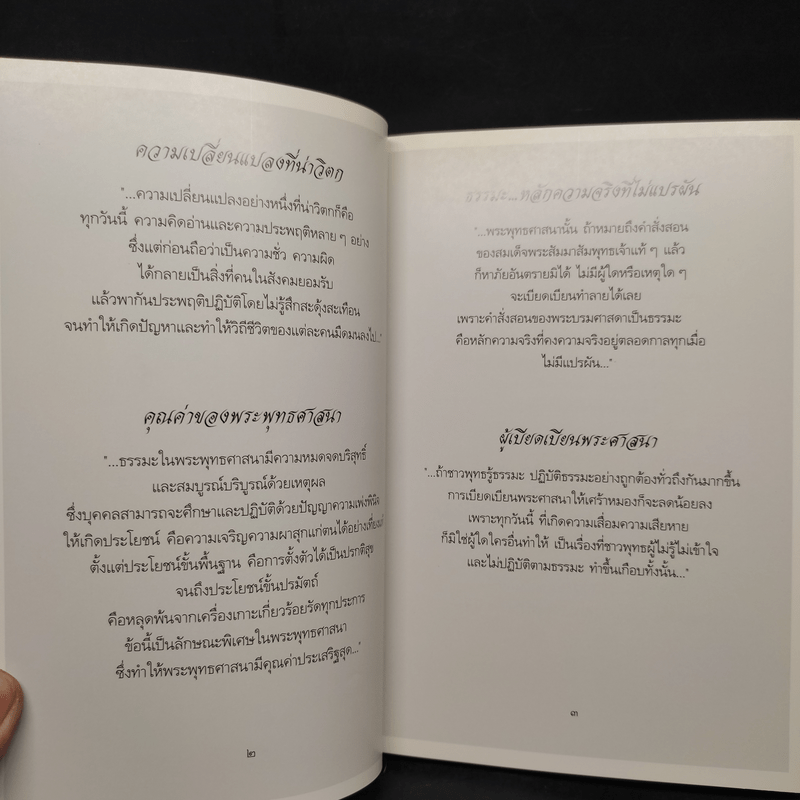 ความเปลี่ยนแปลงที่น่าวิตก
"...ความเปลี่ยนแปลงอย่างหนึ่งที่น่าวิตกก็คือ
ทุกวันนี้ ความคิดอ่านและความประพฤติหลาย ๆ อย่าง
ซึ่งแต่ก่อนถือว่าเป็นความชั่ว ความผิด
ได้กลายเป็นสิ่งที่คนในสังคมยอมรับ
แล้วพากันประพฤติปฏิบัติโดยไม่รู้สึกสะดุ้งสะเทือน
จนทำให้เกิดปัญหาและทำให้วิถีชีวิตของแต่ละคนมืดมนลงไป..."
คุณค่าของพระพุทธศาสนา
"...ธรรมะในพระพุทธศาสนามีความหมดจดบริสุทธิ์
และสมบูรณ์บริบูรณ์ด้วยเหตุผล
ซึ่งบุคคลสามารถจะศึกษาและปฏิบัติด้วยปัญญาความเพ่งพินิจ
ให้เกิดประโยชน์ คือความเจริญความผาสุกแก่ตนได้อย่างเที่ยงแท้
ตั้งแต่ประโยชน์ขั้นพื้นฐาน คือการตั้งตัวได้เป็นปรกติสุข
จนถึงประโยชน์ขั้นปรมัตถ์
คือหลุดพ้นจากเครื่องเกาะเกี่ยวร้อยรัดทุกประการ
ข้อนี้เป็นลักษณะพิเศษในพระพุทธศาสนา
ซึ่งทำให้พระพุทธศาสนามีคุณค่าประเสริฐสุด..."
๒
ธรรมะ...หลักความจริงที่ไม่แปรผัน
"...พระพุทธศาสนานั้น ถ้าหมายถึงคำสั่งสอน
ของสมเด็จพระสัมมาสัมพุทธเจ้าแท้ ๆ แล้ว
ก็หาภัยอันตรายมิได้ ไม่มีผู้ใดหรือเหตุใด ๆ
จะเบียดเบียนทำลายได้เลย
เพราะคำสั่งสอนของพระบรมศาสดาเป็นธรรมะ
คือหลักความจริงที่คงความจริงอยู่ตลอดกาลทุกเมื่อ
ไม่มีแปรผัน..."
ผู้เบียดเบียนพระศาสนา
"...ถ้าชาวพุทธรู้ธรรมะ ปฏิบัติธรรมะอย่างถูกต้องทั่วถึงกันมากขึ้น
การเบียดเบียนพระศาสนาให้เศร้าหมองก็จะลดน้อยลง
เพราะทุกวันนี้ ที่เกิดความเสื่อมความเสียหาย
ก็มิใช่ผู้ใดใครอื่นทำให้ เป็นเรื่องที่ชาวพุทธผู้ไม่รู้ไม่เข้าใจ
และไม่ปฏิบัติตามธรรมะ ทำขึ้นเกือบทั้งนั้น..."
๓